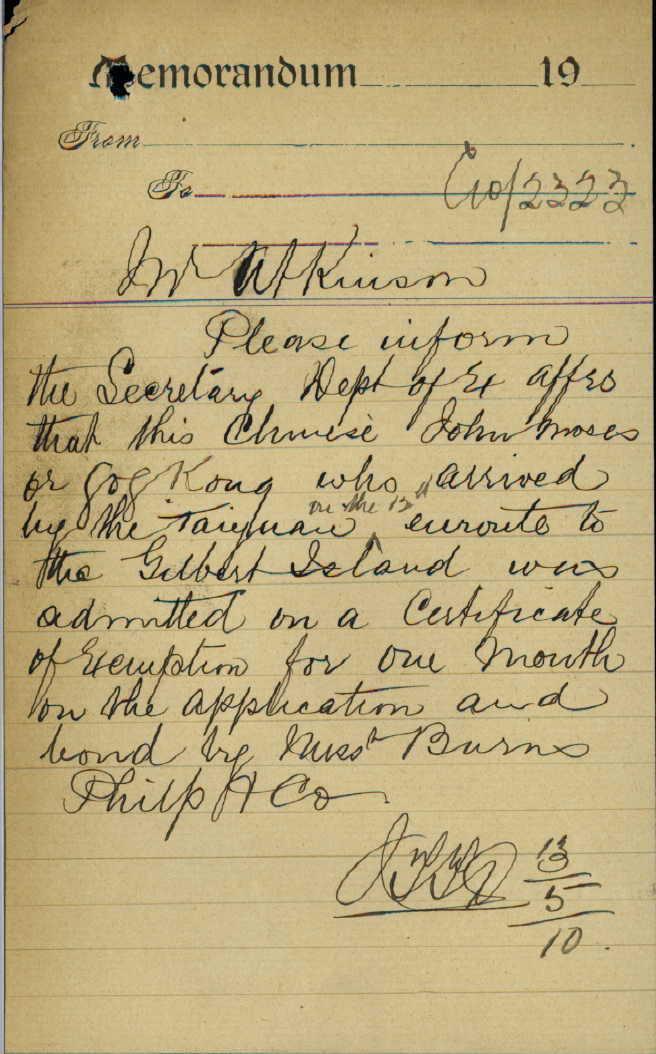 Memorandum 19
From
To
C10/2323
Mr Atkinson
Please inform
the Secretary Dept of Ex Affrs
that this Chinese John Moses
or Gog Kong who arrived
on the 13th
by the Taiyuan enroute to
the Gilbert Island was
admitted on a Certificate
of Exemption for one Month
on the application and
bond by Messrs Burns
Philp & Co
13
5
10.